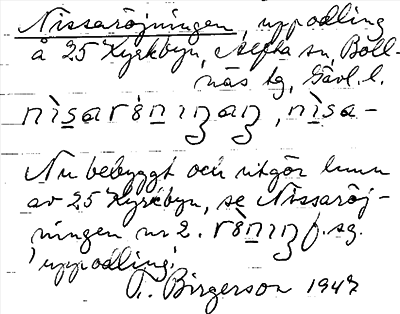 Nissaröjningen, uppodling
å 25 Kyrkbyn, Alfta sn, Boll-
näs tg, Gävl. l.
nìsarö̀nıŋaŋ, nìsa-
Nu bebyggt och utgör hmn
av 25 Kyrkbyn, se Nissaröj-
ningen nr 2. rö̀nıŋ f. sg.
'uppodling'.
T. Birgerson 1947